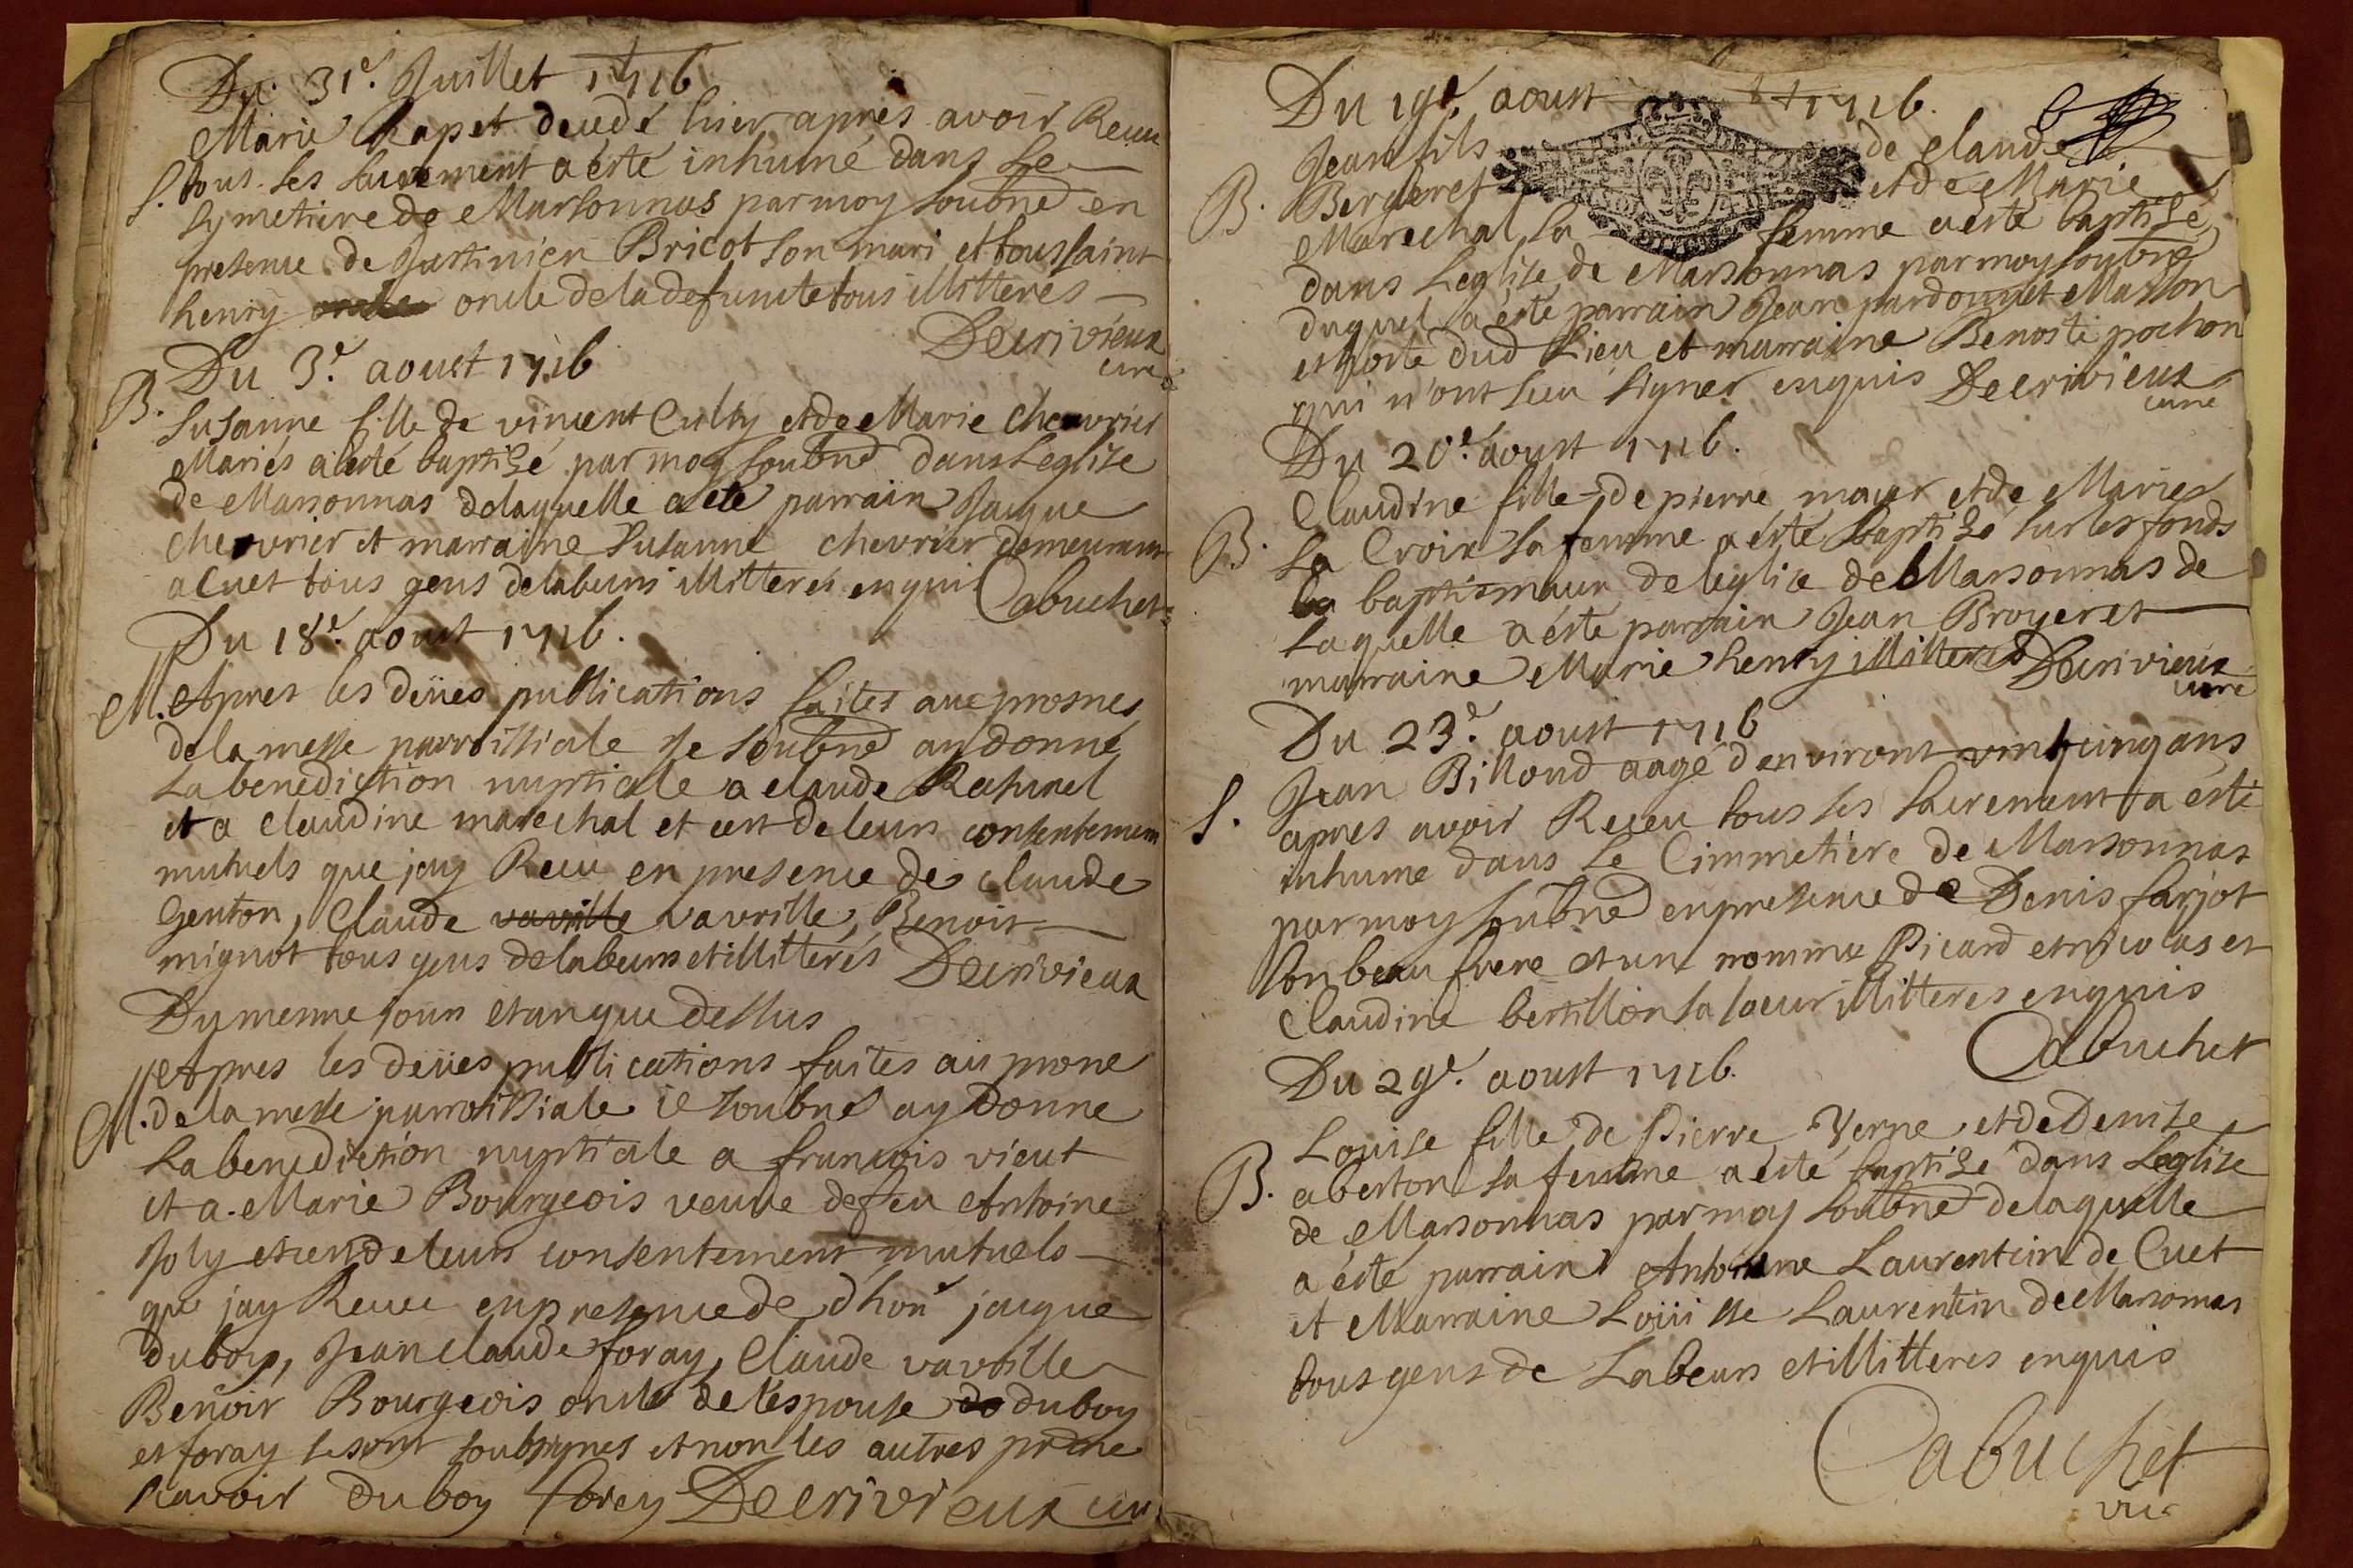 Du 31e. Juillet 1716
Marie Rapet decedé hier apres avoir Receu
S. tous les sacrement a esté inhumé dans Le
symetiere de Marsonnas par moy soubné en
presence de Justinien Bricot son mari et toussaint
henry oncle de la defuncte tous illitteres
Decrivieux
curé
Du 3e. aoust 1716
B.
Susanne fille de vincent Culty et de Marie chevrier
Mariés a esté baptisé par moy soubné dans Leglise
de Marsonnas de laquelle a eté parrain Jaque
chevrier et marraine Susanne chevrier demeurant
a Cuet tous gens de labeurs illitteres enquis Cabuchet
Du 18e. aoust 1716.
M. Apres les deües publications faites aux prosnes
de la messe parroissiale Je soubné ay donné
La benediction nuptiale a claude Raphael
et a claudine marechal et cest de leurs consentemens
mutuels que jay Receu en presence de claude
Genton, Claude vavrille, Benoit
mignot tous gens de labeurs et illitterés Decrivieux
Du mesme jour et an que dessus
Apres les deües publications faites au prone
M. de la messe parroissiale je soubné ay donne
La benediction nuptiale a francois vieut
et a Marie Bourgeois veuve de feu Antoine
Joly et cest de leurs consentement mutuels
que jay Receu en presence de dhon jaque
duboy, Jean claude foray, Claude vavrille
Benoit Bourgeois oncle de l'espouse duboy
et foray se sont soubsignes et non les autres pr ne
scavoir duboy forey Decrivieux cur
Du 19e. aoust 1716.
Jean fils de claude
B. Bergeret et de Marie
Marechal sa femme a esté baptisé
dans Leglise de Marsonnas par moy soubné
duquel a esté parrain Jean pardonnet Masson
et hoste dud Lieu et marraine Benoste pochon
qui n'ont sceu signer enquis Decrivieux
curé
Du 20e. aoust 1716.
Claudine fille de pierre moyer et de Marie
B. La Croix sa femme a esté baptisé sur les fonds
baptismaux de leglise de Marsonnas de
Laquelle a esté parrain Jean Broyeret
marraine Marie henry illitteres Decrivieux
curé
Du 23e. aoust 1716
Jean Billoud aagé d'environt vint cinq ans
S. apres avoir Receu tous les sacrement a esté
inhume dans Le Cimmetiere de Marsonnas
par moy soubné en presence de Denis farjot
son beau frere et un nomme Picard et nicolas et
Claudine bertillon sa soeur illitteres enquis
Cabuchet
Du 29e. aoust 1716.
Louise fille de Pierre Verne et de Denise
B. aberton sa femme a esté baptisé dans Leglise
de Marsonnas par moy soubné de laquelle
a esté parrain Antoine Laurentin de Cuet
et Marraine Loüisse Laurentin de Marsonnas
tous gens de Labeurs et illitteres enquis
Cabuchet
vic